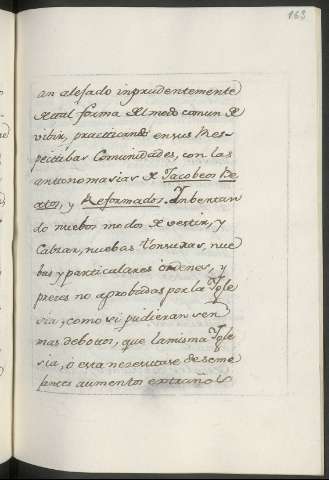 163
an alejado inprudentemente
de tal forma del modo comun de
vibir, practicando en sus Res-
pectibas Comunidades, con las
antonomasias de Jacobeos Be
atos, y Reformados. Inbentan
do nuebos modos de vestir, y
Calzar, nuebas tonsuras, nue
bas y particulares ordenes, y
preces no aprobadas por la Igle
sia, como si pudieran ser
mas debotos, que la misma Igle
sia, ò esta necesitase de seme
jantes aumentos extraños